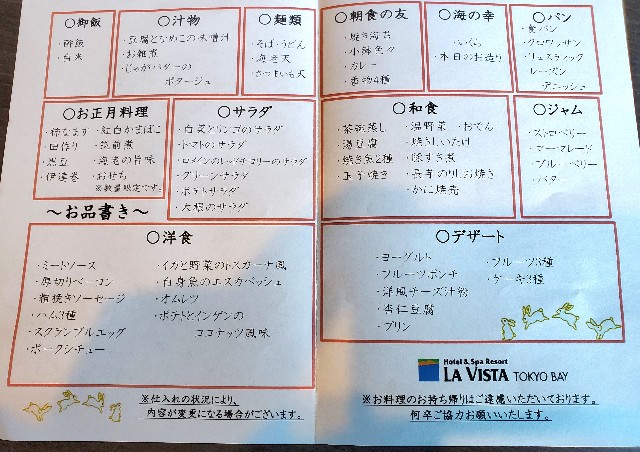 〇御飯
・酢飯
・白米
〇汁物
・豆腐となめこの味噌汁
・お雑煮
・じゃがバターの
ポタージュ
〇麺類
・そば・うどん
・海老天
・さつまいも天
〇朝食の友
・焼き海苔
・小鉢色々
・カレー
・香物4種
〇海の幸
・いくら
・本日のお造り
〇パン
・食パン
・クロワッサン
・リュスティック
・レーズン
デニッシュ
〇お正月料理
・柿なます
・田作り
・黒豆
・伊達巻
・紅白かまぼこ
・筑前煮
・海老の旨味
・おせち
※数量限定です。
〇サラダ
・白菜とリンゴのサラダ
・トマトのサラダ
・グリーンサラダ
・ポテトサラダ
・大根のサラダ
〇和食
・茶碗蒸し
・湯豆腐
・焼き魚2種
・玉子焼き
・温野菜
・おでん
・焼きしいたけ
・豚すき煮
・長芋のりしお焼き
・かに焼売
〇ジャム
・ストロベリー
・マーマレード
・ブルーベリー
・バター
～お品書き～
〇洋食
・ミートソース
・厚切りベーコン
・粗挽きソーセージ
・ハム3種
・スクランブルエッグ
・ポークシチュー
・イカと野菜のトスカーナ風
・白身魚のエスカベッシュ
・オムレツ
・ポテトとインゲンの
ココナッツ風味
〇デザート
・ヨーグルト
・フルーツポンチ
・洋風チーズ汁粉
・杏仁豆腐
・プリン
・フルーツ3種
・ケーキ3種
Hotel & Spa Resort
LA VISTA TOKYO BAY
※仕入れの状況により、
内容が変更になる場合がございます。
※お料理のお持ち帰りはご遠慮いただいております。
何卒ご協力お願いいたします。